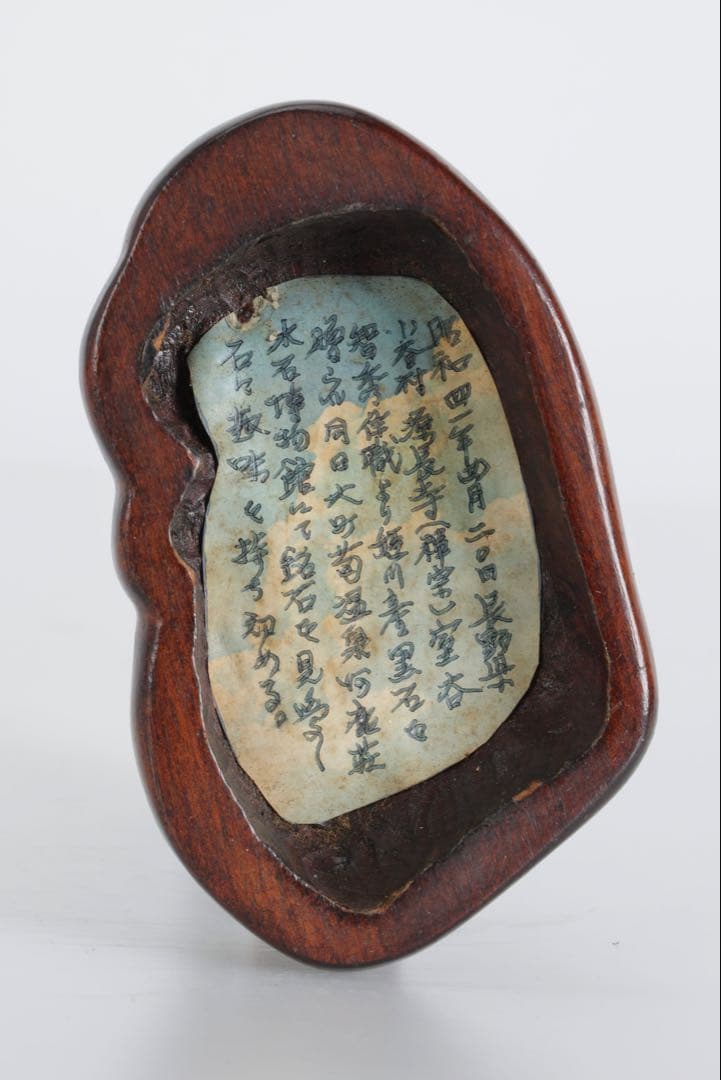 昭和四二年四月二〇日長野県
谷村 長寺(禅宗)室谷
智秀住職より姫川産黒石を
贈られ同日大町葛温泉河鹿荘
水石博物館にて銘石を見
石に趣味を持ち初める。